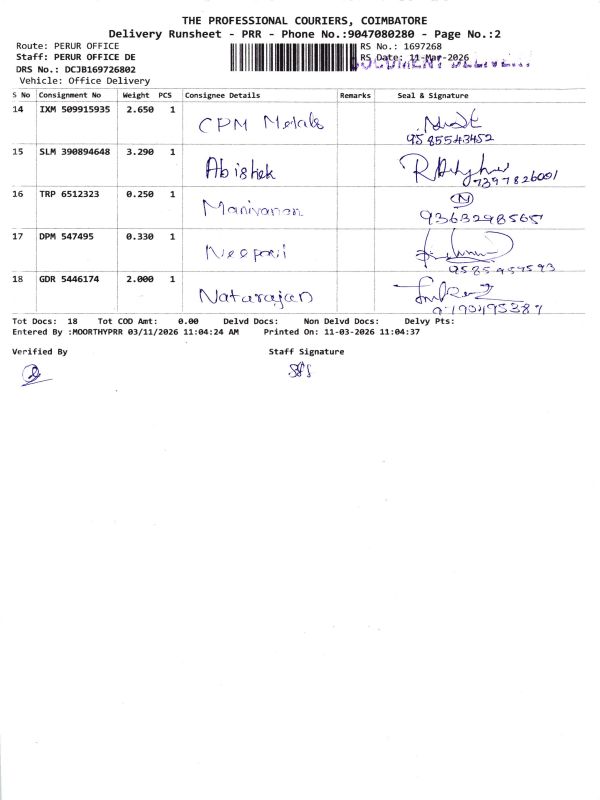 THE PROFESSIONAL COURIERS, COIMBATORE
Delivery Runsheet - PRR - Phone No.:9047080280 - Page No.:2
Route: PERUR OFFICE
RS No.: 1697268
Staff: PERUR OFFICE DE
RS Date: 11-Mar-2026
DRS No.: DCJB169726802
Vehicle: Office Delivery
S No Consignment No Weight PCS Consignee Details Remarks Seal & Signature
14 IXM 509915935 2.650 1 CPM Metals
9585543452
15 SLM 390894648 3.290 1 Abishek
7397826001
16 TRP 6512323 0.250 1 Manivanan N
9363298565
17 DPM 547495 0.330 1
9585457593
18 GDR 5446174 2.000 1 Natarajan
Tot Docs: 18 Tot COD Amt: 0.00 Delvd Docs: Non Delvd Docs: Delvy Pts:
Entered By :MOORTHYPRR 03/11/2026 11:04:24 AM Printed On: 11-03-2026 11:04:37
Verified By Staff Signature